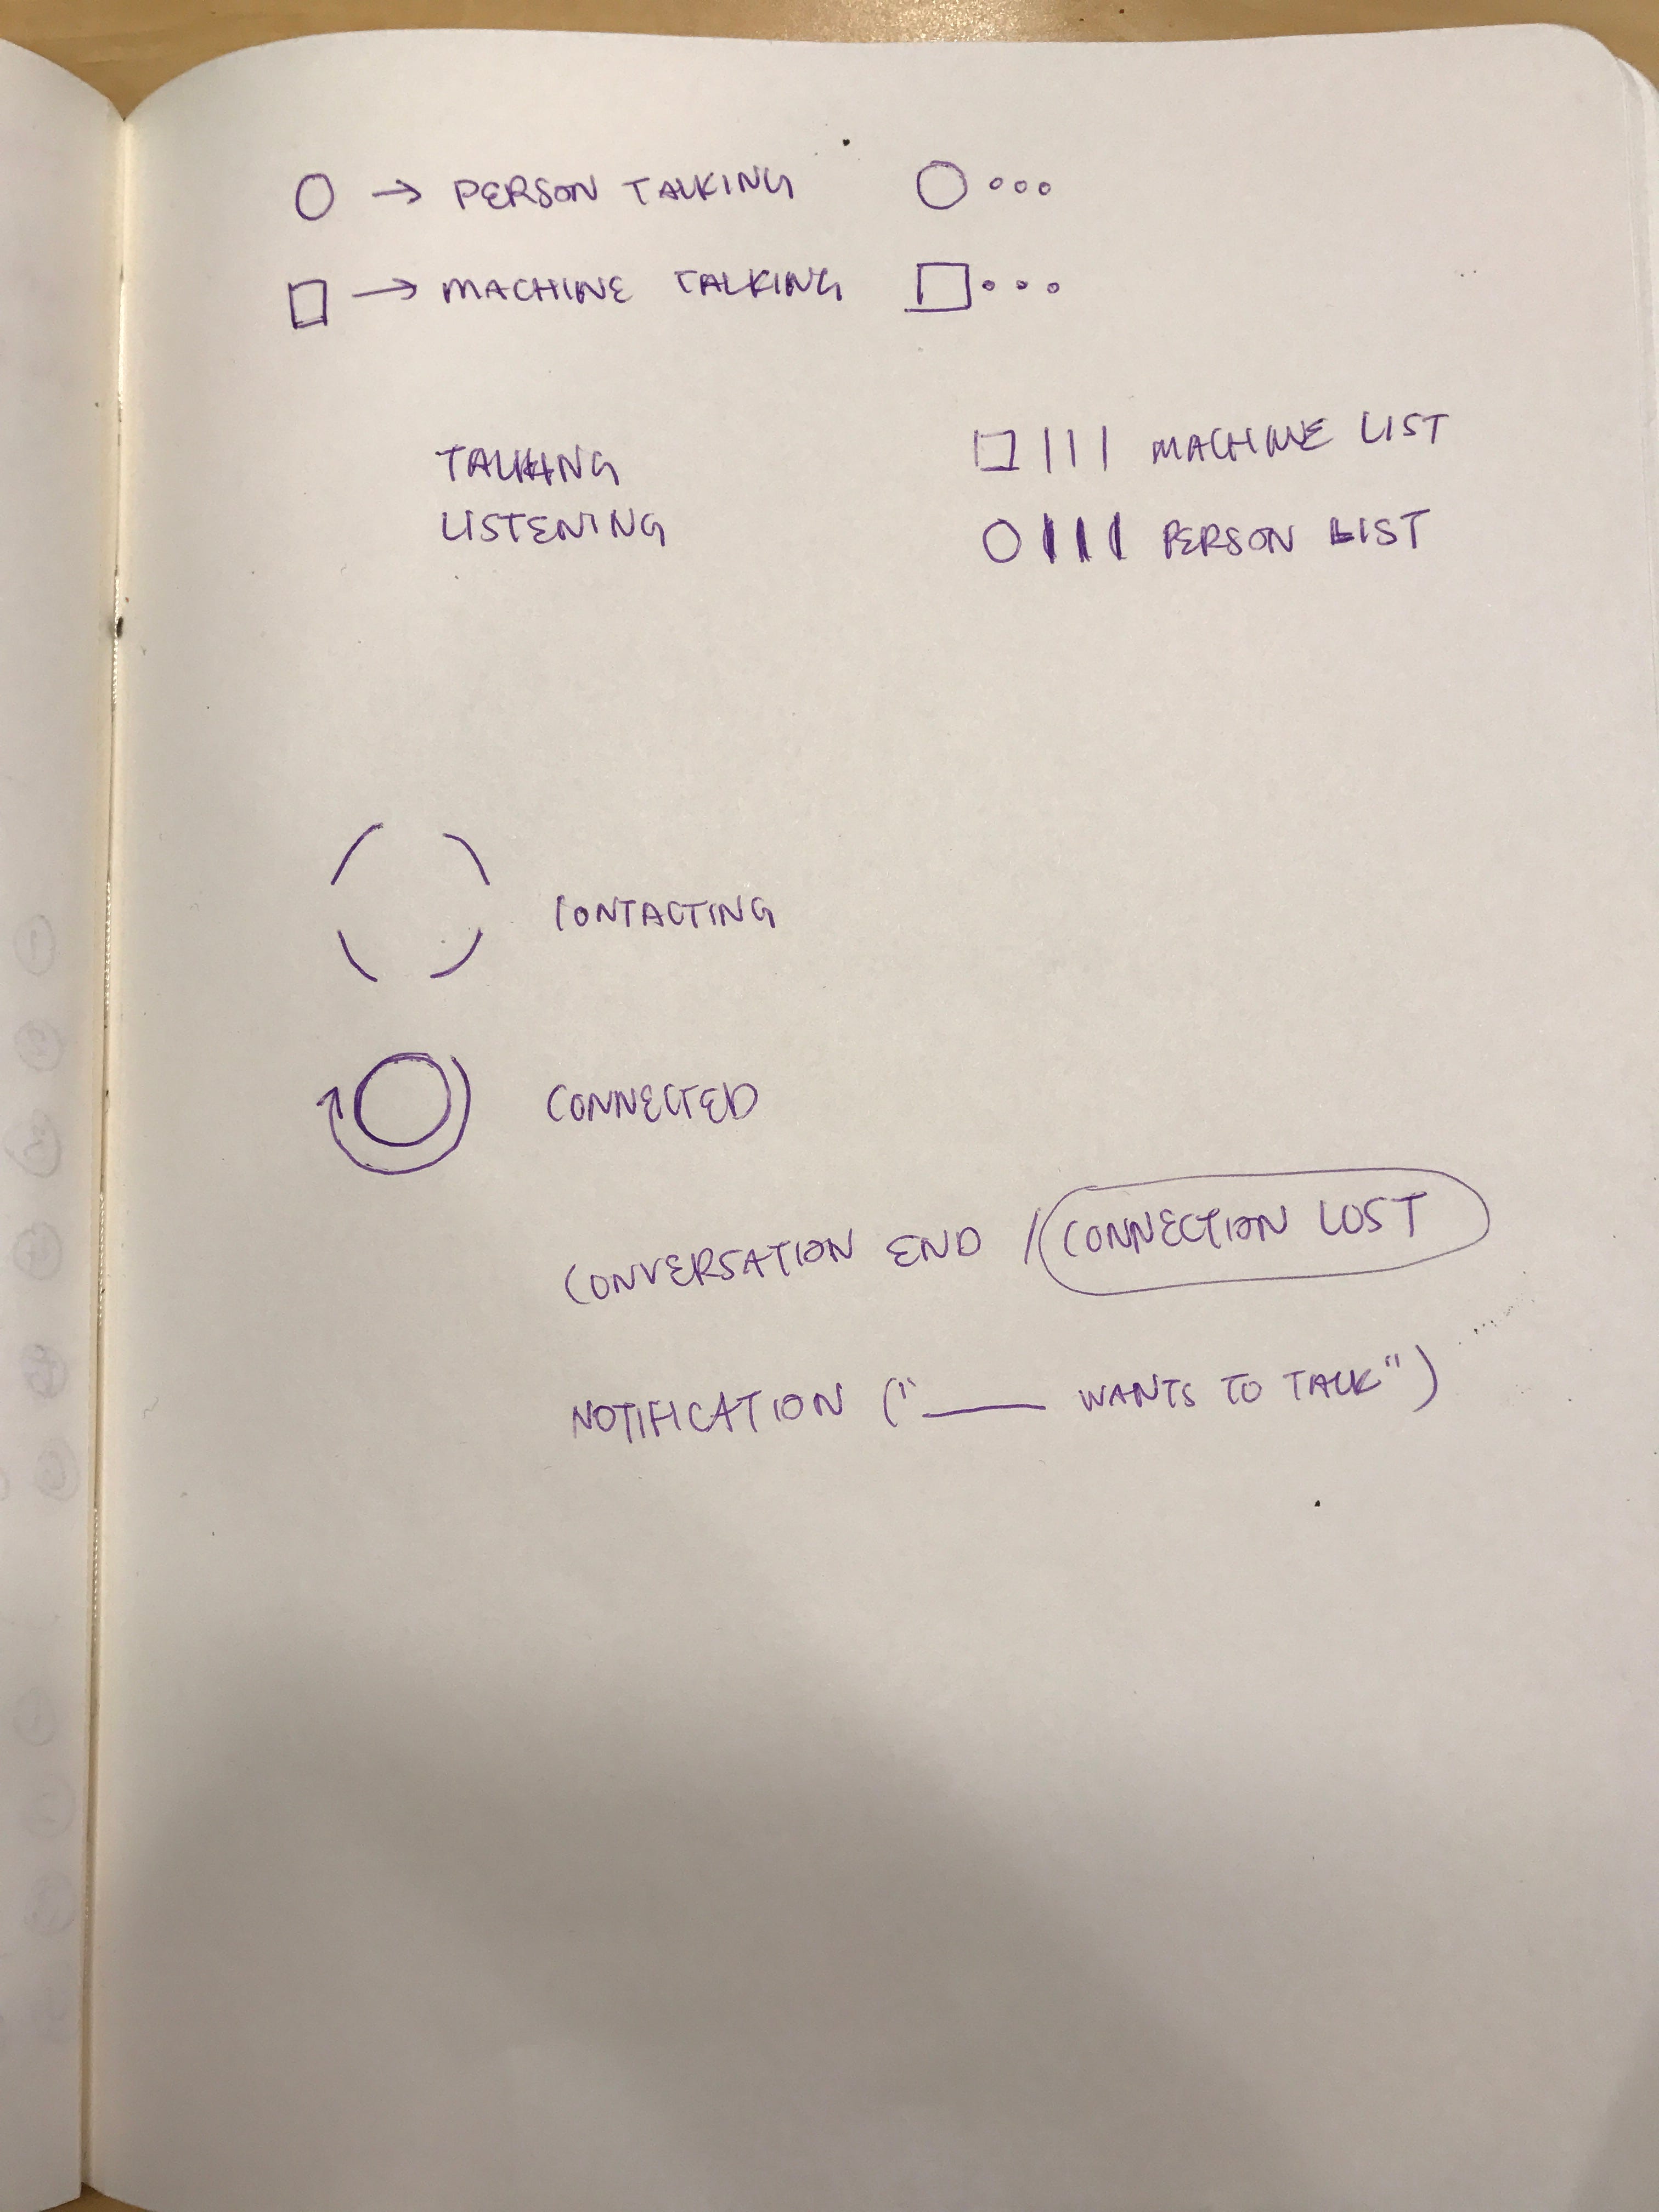 → PERSON TALKING
→ MACHINE TALKING
TALKING
LISTENING
MACHINE LIST
PERSON LIST
CONTACTING
CONNECTED
CONVERSATION END / CONNECTION LOST
NOTIFICATION ("____ WANTS TO TALK")